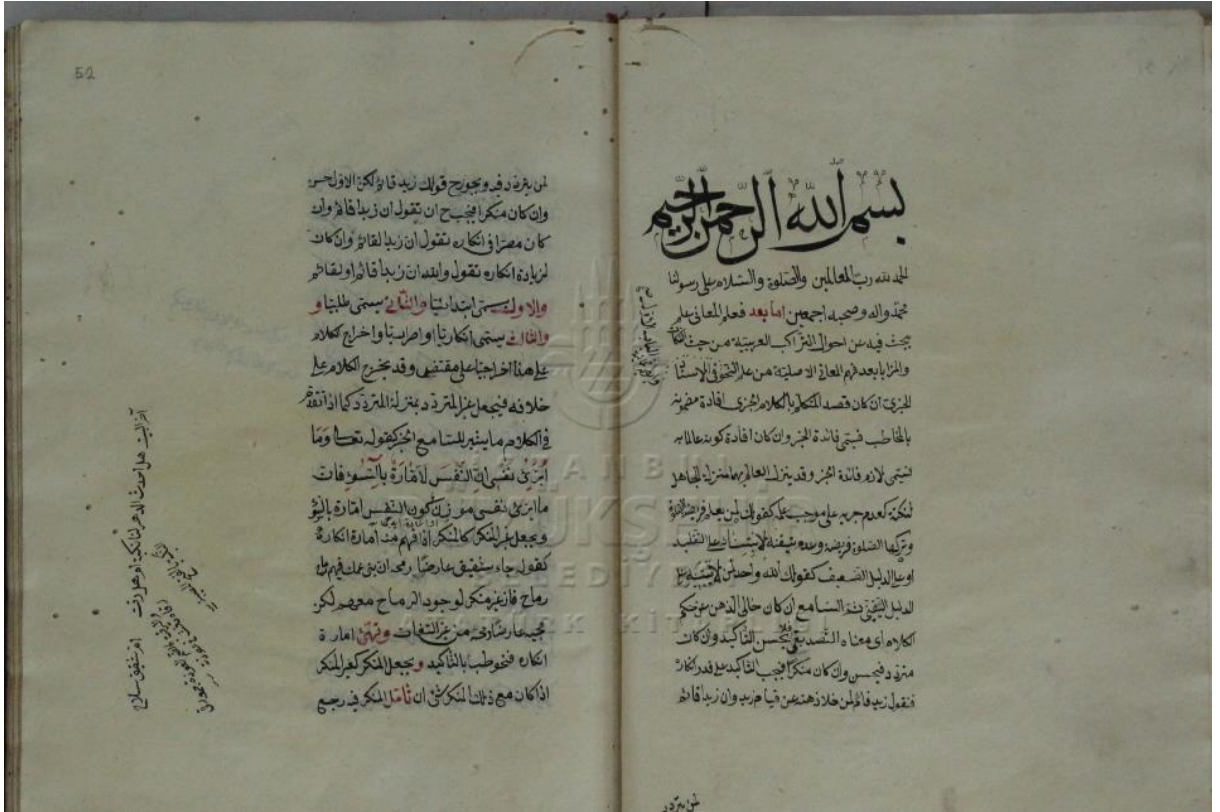 بسم الله الرحمن الرحيم
الحمد لله رب العالمين والصلوة والسلام على رسولنا
محمد واله وصحبه اجمعين اما بعد فعلم المعاني علم
يبحث فيه عن احوال التراكيب العربية من حيث
والمزايا بعد فهم المعاني الاصلية من علم النحو في الاسناد
الخبري ان كان قصد المتكلم بالكلام الخبري افادة مضمونه
بالمخاطب فيسمى فائدة الخبر وان كان افادة كونه عالما به
فيسمى لازم فائدة الخبر وقد ينزل العالم بهما منزلة الجاهل
لنكتة كعدم جريه على موجب علمه كقولك لمن يعلم فريضة
وتركها الصلوة فريضة وعدم تيقنه على التقليد
او على الدليل الضعيف كقولك الله واحد لمن
الدليل اليقيني فثم السامع ان كان خالي الذهن عن حكم
الكلام اي معناه التصديقي فلا يحسن التأكيد وان كان
مترددا فيحسن وان كان منكرا فيجب التأكيد على قدر انكاره
فنقول زيد قائم لمن خلا ذهنه عن قيام زيد وان زيدا قائم
لمن يتردد
52
لمن يتردد فيه ويجوز ح قولك زيد قائم لكن الاول حسن
وان كان منكرا فيجب ح ان تقول ان زيدا قائم وان
كان مصرا في انكاره تقول ان زيدا لقائم وان كان
لزيادة انكاره تقول والله ان زيدا قائم او لقائم
والاول يسمى ابتدائيا والثاني يسمى طلبيا و
والثالث يسمى انكاريا او اصراريا واخراج الكلام
على هذا اخراجا على مقتضى وقد يخرج الكلام على
خلافه فيجعل غير المتردد بمنزلة المتردد كما اذا تقدم
في الكلام ما يشير للسامع الخبر كقوله تعالى وما
ابرئ نفسي ان النفس لامارة بالسوء فان
ما ابرئ نفسي كون النفس امارة بالسوء
ويجعل غير المنكر كالمنكر اذا فهم منه امارة انكاره
كقول جاء شقيق عارضا رمحه ان بني عمك فيهم
رماح فان غير منكر لوجود الرماح معهم لكن
مجيئه عارضا رمحه من غير التفات وتهيئ امارة
انكاره فخوطب بالتأكيد ويجعل المنكر كغير المنكر
اذا كان مع ذلك المنكر شئ ان تأمل المنكر فيه رجع
آخر البيت هل احدث الدهر لنا نكبة ام هل رقت ام شقيق سلاح
ISTANBUL
BÜYÜKŞEHİR
BELEDİYESİ
ATATÜRK KİTAPLIĞI